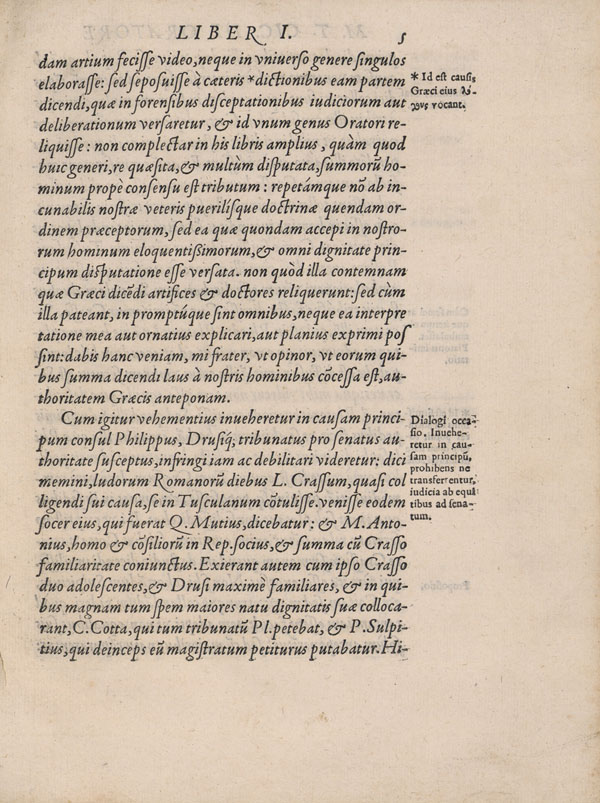 LIBER I. 5
dam artium fecisse video, neque in vniuerso genere singulos
elaborasse: sed seposuisse à cæteris *dictionibus eam partem
dicendi, quæ in forensibus disceptationibus iudiciorum aut
deliberationum versaretur, & id vnum genus Oratori re-
liquisse: non complectar in his libris amplius, quàm quod
huic generi, re quæsita, & multùm disputata, summorū ho-
minum propè consensu est tributum: repetámque nō ab in-
cunabilis nostræ veteris puerilísque doctrinæ quendam or-
dinem præceptorum, sed ea quæ quondam accepi in nostro-
rum hominum eloquentissimorum, & omni dignitate prin-
cipum disputatione esse versata. non quòd illa contemnam
quæ Græci dicēdi artifices & doctores reliquerunt: sed cùm
illa pateant, in promptúque sint omnibus, neque ea interpre
tatione mea aut ornatius explicari, aut planius exprimi pos
sint: dabis hanc veniam, mi frater, vt opinor, vt eorum qui-
bus summa dicendi laus à nostris hominibus cōcessa est, au-
thoritatem Græcis anteponam.
Cum igitur vehementius inueheretur in causam princi-
pum consul Philippus, Drusiq; tribunatus pro senatus au-
thoritate susceptus, infringi iam ac debilitari videretur: dici
memini, ludorum Romanorū diebus L. Crassum, quasi col
ligendi sui causa, se in Tusculanum cōtulisse. venisse eodem
socer eius, qui fuerat Q. Mutius, dicebatur: & M. Anto-
nius, homo & cōsiliorū in Rep. socius, & summa cū Crasso
familiaritate coniunctus. Exierant autem cum ipso Crasso
duo adolescentes, & Drusi maximè familiares, & in qui-
bus magnam tum spem maiores natu dignitatis suæ colloca-
rant, C. Cotta, qui tum tribunatū Pl. petebat, & P. Sulpi-
tius, qui deinceps eū magistratum petiturus putabatur. Hi-
* Id est causis
Græci eius λό-
γους vocant.
Dialogi occa-
sio. Inuehe-
retur in cau-
sam principū,
prohibens ne
transferrentur,
iudicia ab equi
tibus ad sena-
tum.